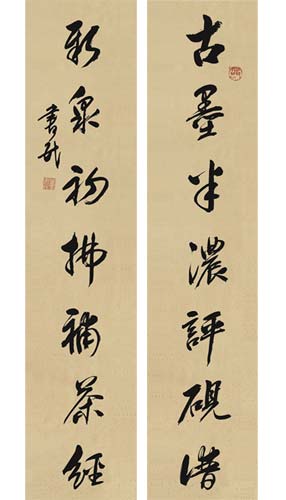 古墨半濃評硯譜
新泉初拂補茶經